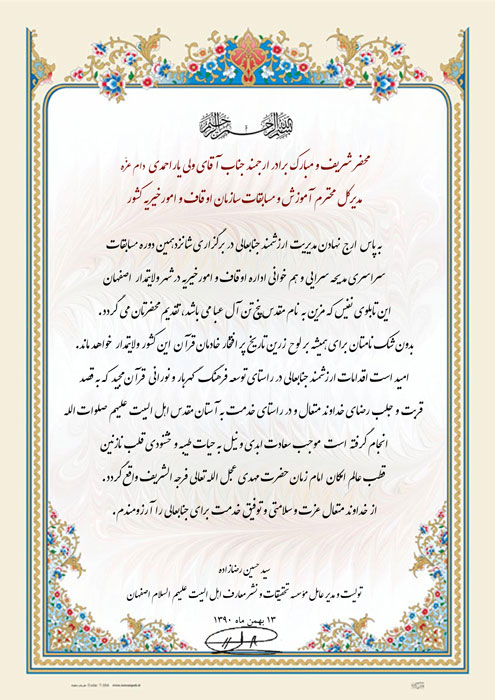 بسم الله الرحمن الرحیم
محضر شریف و مبارک برادر ارجمند جناب آقای ولی یاراحمدی دام عزه
مدیرکل محترم آموزش و مسابقات سازمان اوقاف و امور خیریه کشور
به پاس ارج نهادن مدیریت ارزشمند جنابعالی در برگزاری شانزدهمین دوره مسابقات
سراسری مدیحه سرایی و هم خوانی اداره اوقاف و امور خیریه در شهر ولایتمدار اصفهان
این تابلوی نفیس که مزین به نام مقدس پنج تن آل عبا می باشد، تقدیم محضرتان می گردد.
بدون شک نامتان برای همیشه بر لوح زرین تاریخ پر افتخار خادمان قرآن این کشور ولایتمدار خواهد ماند.
امید است اقدامات ارزشمند جنابعالی در راستای توسعه فرهنگ گهربار و نورانی قرآن مجید که به قصد
قربت و جلب رضای خداوند متعال و در راستای خدمت به آستان مقدس اهل البیت علیهم صلوات الله
انجام گرفته است موجب سعادت ابدی و نیل به حیات طیبه و خشنودی قلب نازنین
قطب عالم امکان امام زمان حضرت مهدی عجل الله تعالی فرجه الشریف واقع گردد.
از خداوند متعال عزت و سلامتی و توفیق خدمت برای جنابعالی را آرزومندم.
سید حسین رضازاده
تولیت و مدیر عامل مؤسسه تحقیقات و نشر معارف اهل البیت علیهم السلام اصفهان
۱۳ بهمن ماه ۱۳۹۰